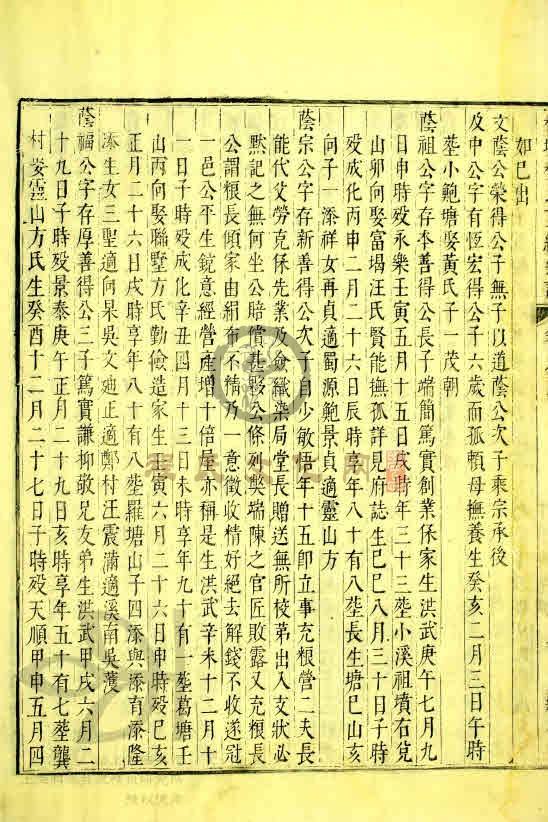 如巳出
文蔭公榮得公子無子以道蔭公次子乘宗承後
及中公字有恆宏得公子六歲而孤賴母撫養生癸亥二月三日午時
塟小鮑塘娶黃氏子一茂朝
蔭祖公字存本善得公長子端簡篤實創業保家生洪武庚午七月九
日申時殁永樂壬寅五月十五日戌時年三十三塟小溪祖墳右兌
山卯向娶富堨汪氏賢能撫孤詳見府誌生巳巳八月三十日子時
殁成化丙申二月二十六日辰時享年八十有八塟長生塘巳山亥
向子一添祥女再貞適蜀源鮑景貞適靈山方
蔭宗公字存新善得公次子自少敏悟年十五即立事充粮管二夫長
能代父勞克保先業乃僉織染局堂長贈送無所校苐出入支狀必
默記之無何坐公賠償甚夥公條列獘端陳之官匠敗露又充粮長
公謂粮長傾家由絹布不精乃一意徵收精好絕去解錢不收遂冠
一邑公平生銳意經營產增十倍屋亦稱是生洪武辛未十二月十
一日子時殁成化辛丑四月十三日未時享年九十有一塟葛塘壬
山丙向娶聯墅方氏勤儉造家生壬寅六月二十六日申時殁巳亥
正月二十六日戌時享年八十有八塟羅塘山子四添與添育添隆
添生女三聖適向杲吳文廸正適鄭村汪震滿適溪南吳濩
蔭福公字存厚善得公三子篤實謙抑敬兄友弟生洪武甲戌六月二
十九日子時殁景泰庚午正月二十九日亥時享年五十有七塟龔
村娶靈山方氏生癸酉十二月二十七日子時殁天順甲申五月四